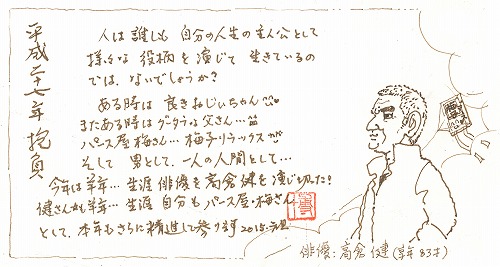 平成二十七年 抱負
人は誰しも 自分の人生の主人公として
様々な 役柄を演じて 生きているの
では、ないでしょうか?
ある時は 良きおじいちゃん
またある時は グータラな父さん…
パース屋 梅さん… 梅子リラックスが
そして 男として、一人の人間として…
今年は羊年… 生涯 俳優を 高倉健を 演じ切った!
健さんも羊年… 生涯 自分も パース屋・梅さん
として、本年もさらに精進して参ります 2015.元旦
俳優:高倉健(羊年83才)